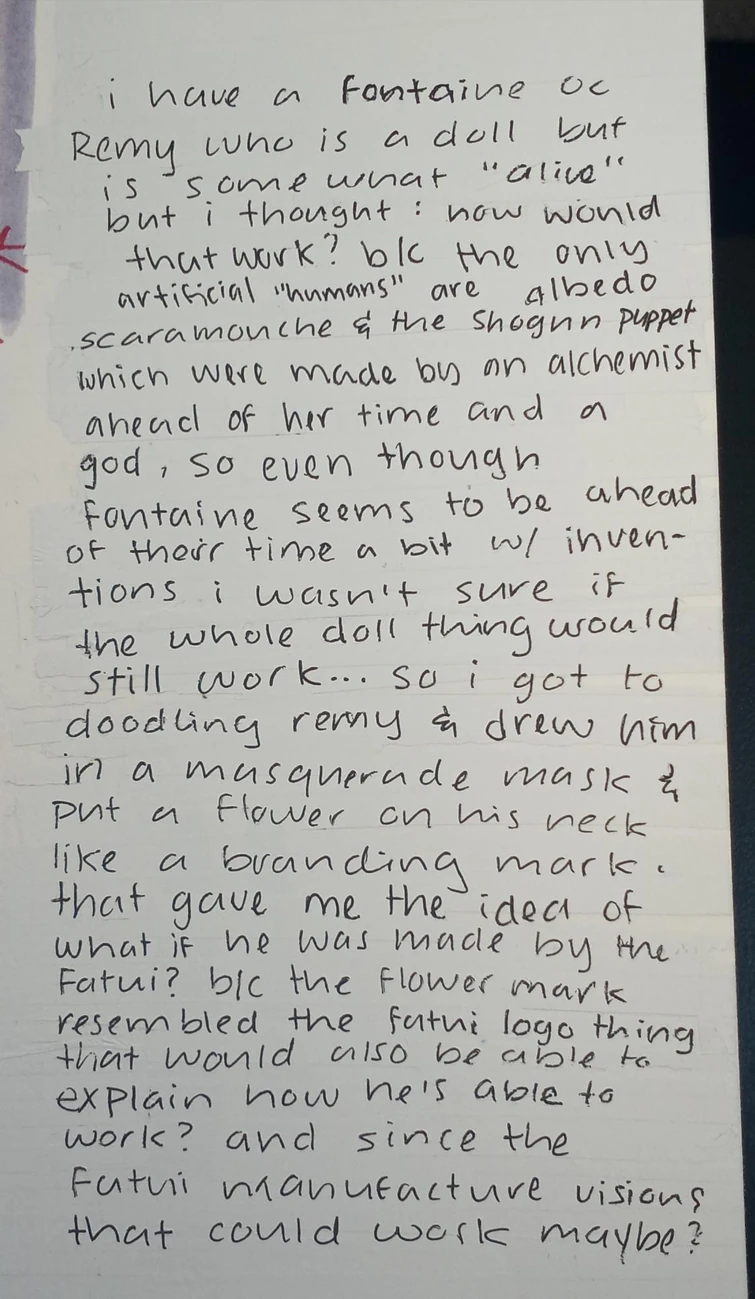 i have a fontaine oc
Remy who is a doll but
is somewhat "alive"
but i thought : how would
that work? b/c the only
artificial "humans" are albedo
scaramouche & the shogun puppet
which were made by an alchemist
ahead of her time and a
god, so even though
fontaine seems to be ahead
of their time a bit w/ inven-
tions i wasn't sure if
the whole doll thing would
still work... so i got to
doodling remy & drew him
in a masquerade mask &
put a flower on his neck
like a branding mark.
that gave me the idea of
what if he was made by the
Fatui? b/c the flower mark
resembled the fatui logo thing
that would also be able to
explain how he's able to
work? and since the
Fatui manufacture visions
that could work maybe?